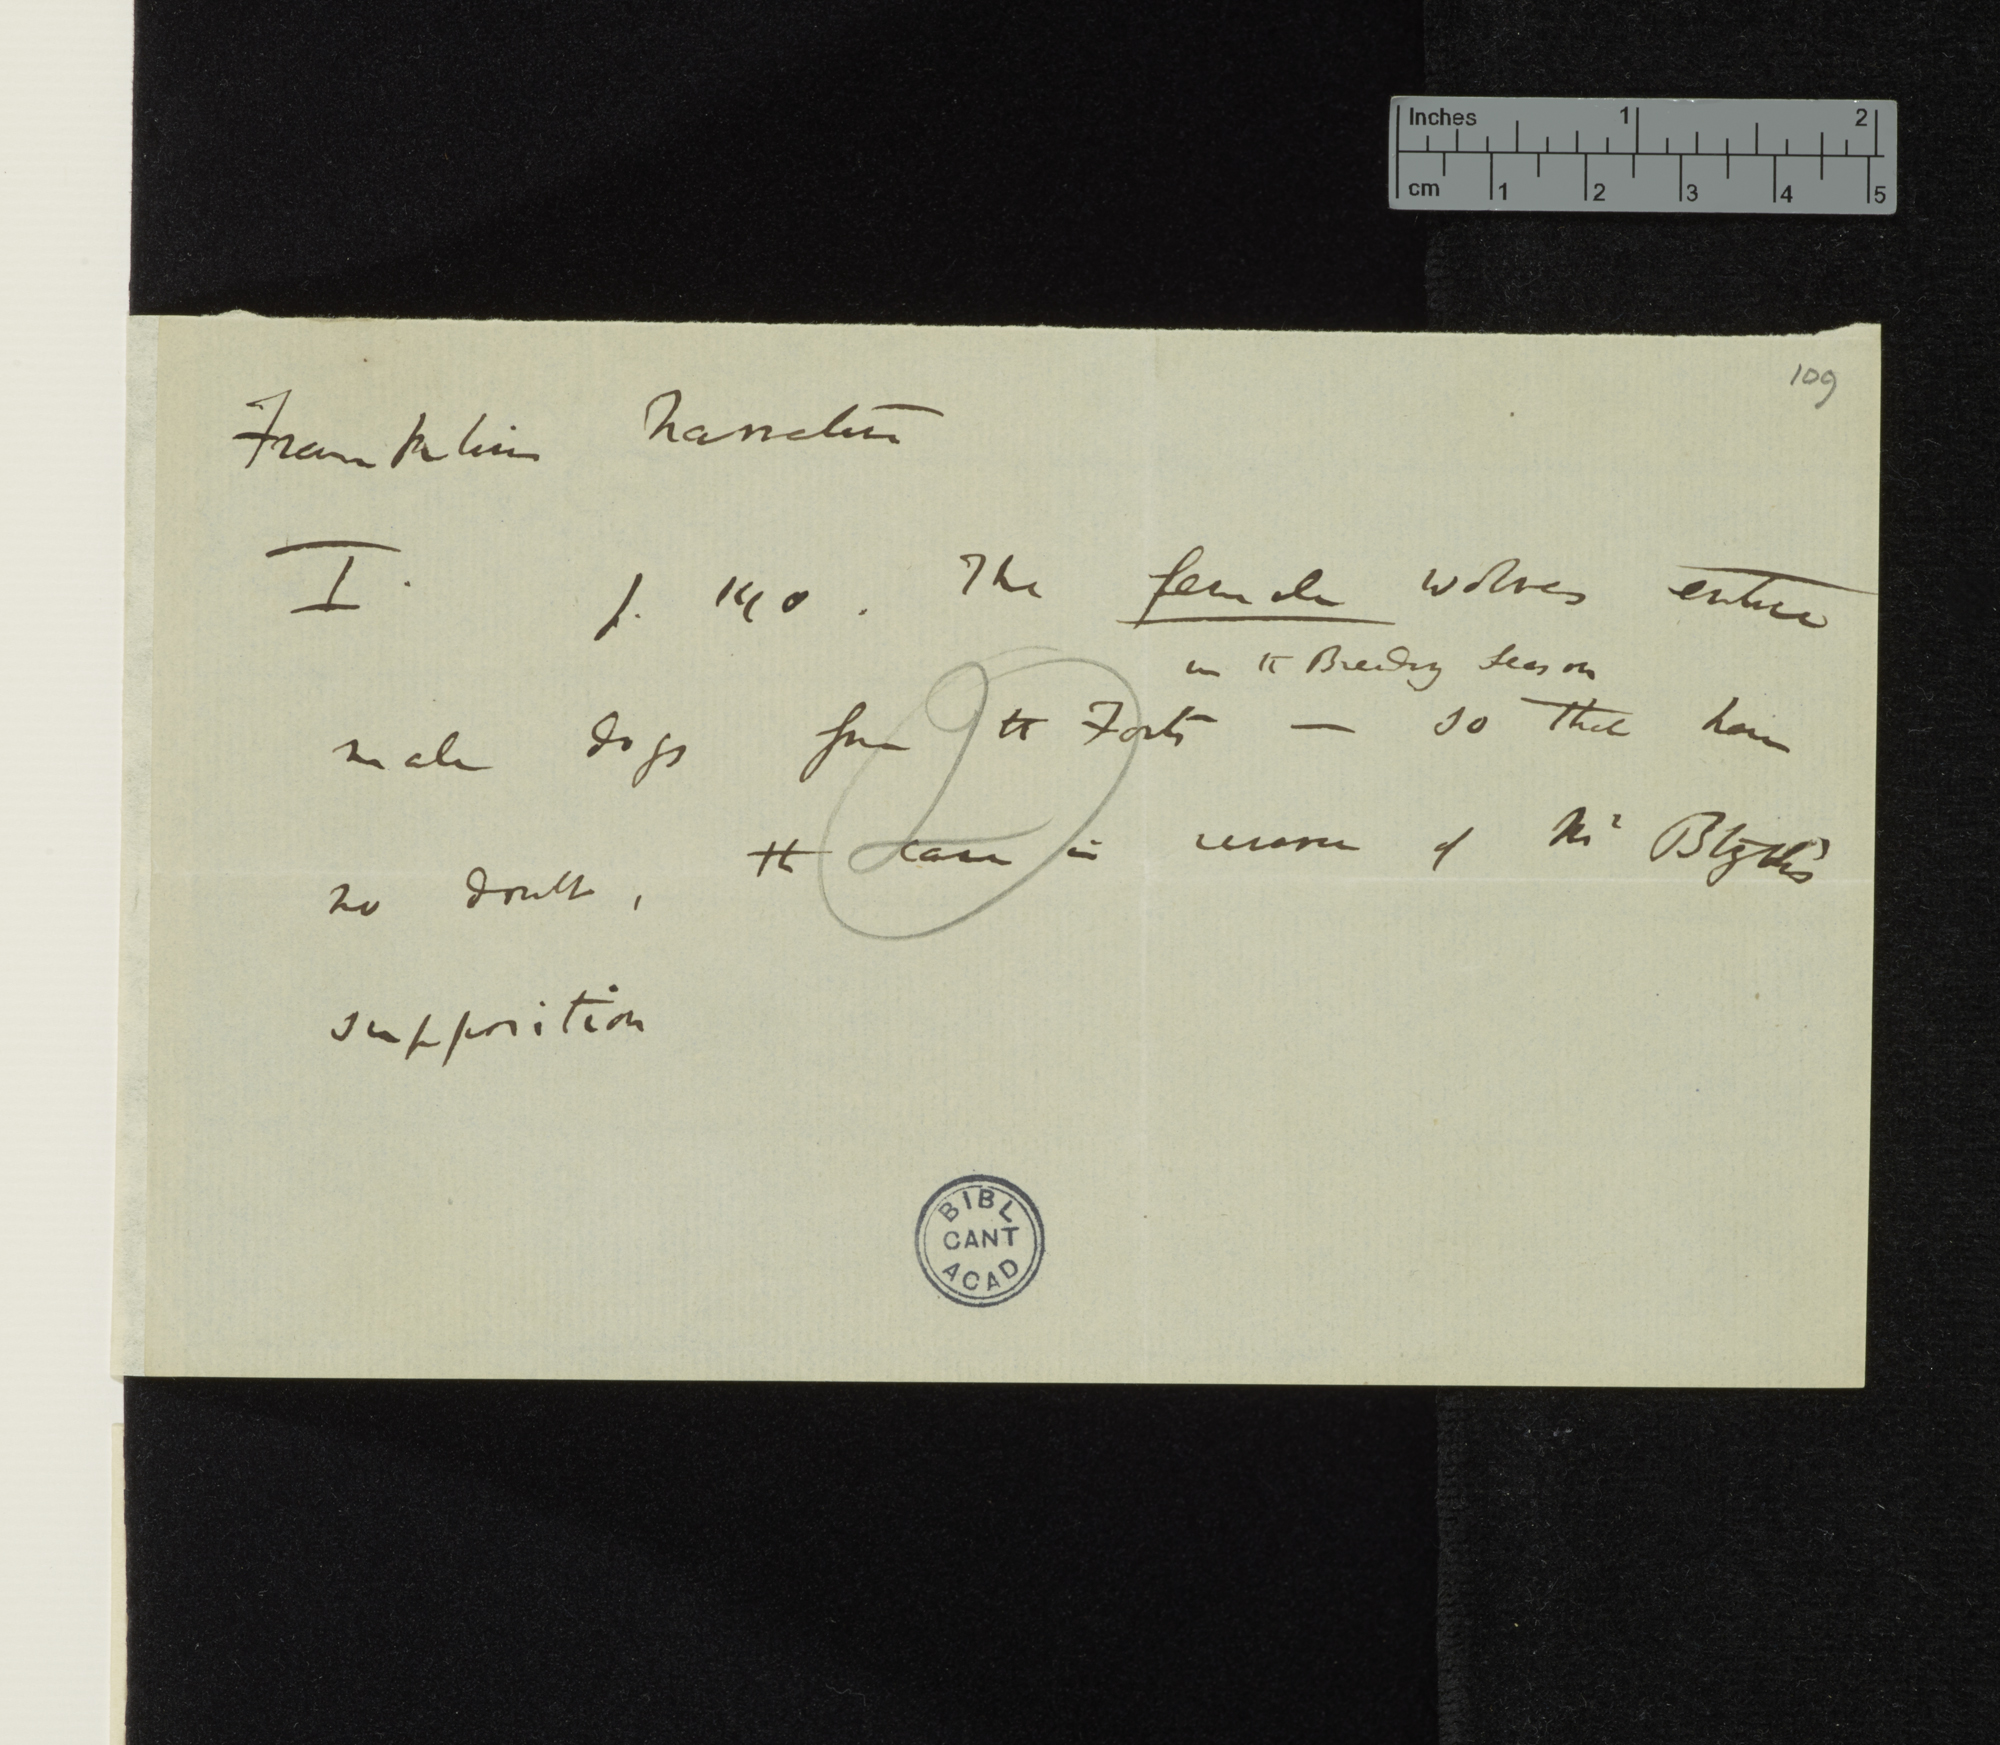 109
Inches 1 2
cm 1 2 3 4 5
Franklin Narrative
I. p. 140. The female wolves entice
in the Breeding Season
male dogs from the Forts — so that here
no doubt, the case is reverse of Mr Blyth's
supposition
BIBL
CANT
ACAD